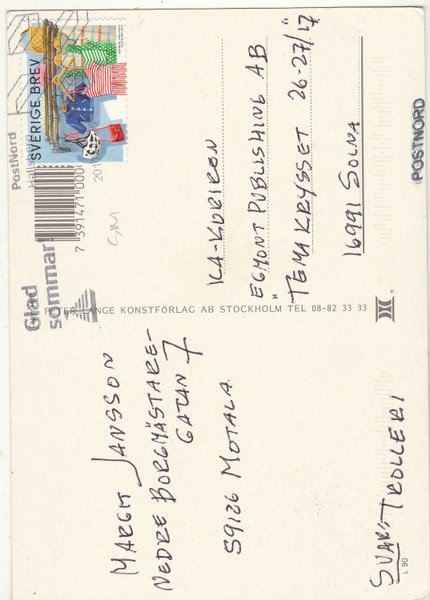 MARGIT JANSSON
NEDRE BORGMÄSTARE-
GATAN 7
59126 MOTALA
SVAR: TROLLERI
L 90
PETER LANGE KONSTFÖRLAG AB STOCKHOLM TEL 08-82 33 33
SVERIGE BREV
PostNord
Glad
sommar!
7 391471 000
ICA-KURIREN
EGMONT PUBLISHING AB
TEMAKRYSSET 26-27/17
16991 SOLNA
POSTNORD